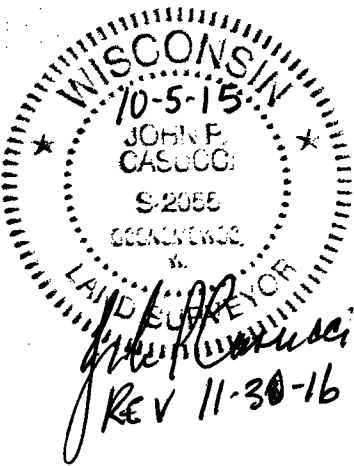 WISCONSIN
10-5-15
JOHN P.
CASUCCI
S-2055
LAND SURVEYOR
John P Casucci
REV 11-30-16